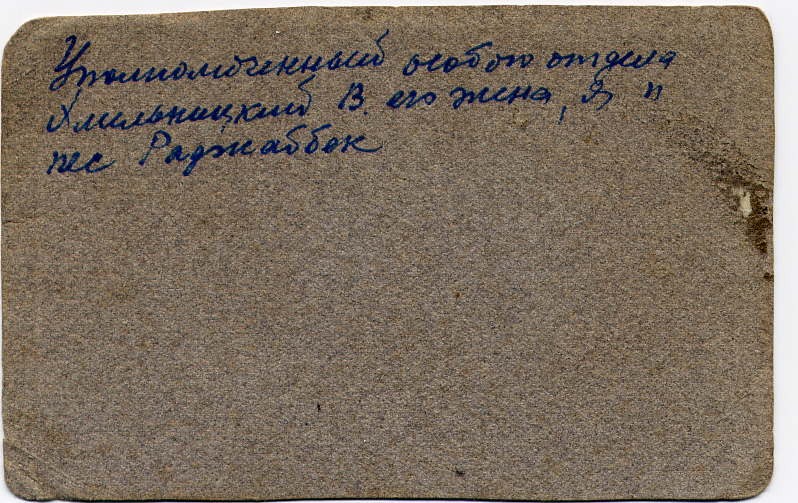 Уполномоченный особого отдела
Хмельницкий В. его жена, Я и
пес Раджаббек